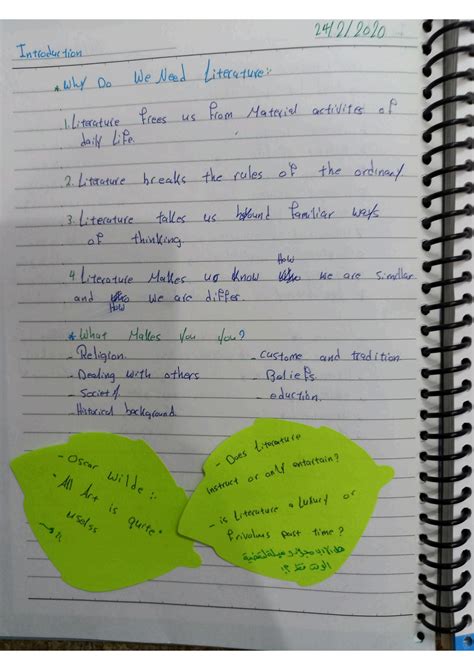 24/2/2020
Introduction
* Why Do We Need Literature:
1. Literature frees us from Material activites of
daily life.
2. Literature breaks the rules of the ordinary
3. Literature takes us familiar ways
of thinking.
How
4. Literature Makes us know we are similar
and we are differ.
How
* What Makes You You?
- Religion.
- custome and tradition
- Dealing with others
- Beliefs
- Society
- eduction.
- Historical background.
- Oscar Wilde :.
- All Art is quite
uselss
- Does Literature
instruct or only entartain?
- is Literature a Luxury or
Frivolous past time?